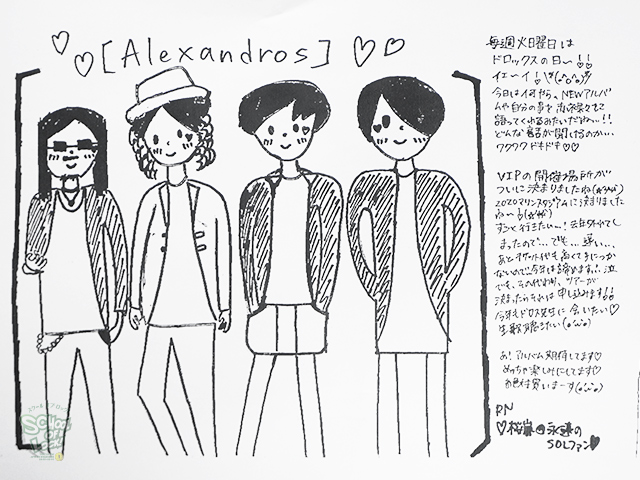 [Alexandros]
毎週火曜日は
ドロックスの日〜!!
イェーイ!
今日は何やら、NEWアルバ
ムや自分の事を
語ってくれるみたいだねっ…!!
どんな審が聞けるのか…
ワクワクドキドキ♡♡
VIPの開催場所が
ついに決まりましたね
2020マリンスタジアムに決まりました
ね〜
ずっと行きたい…!
まったので…でも…遠い…
あとチケット代も高くて手につか
ないので今年は諦めます!泣
でも、その代わり、ツアーが
決まったらそれは申し込みます!!
今年もドロス先生に会いたい♡
生歌聴きたい
あ!アルバム期待してます♡
めっちゃ楽しみにしてます♡
絶対買いまーす
RN
♡桜嵐@永遠の
SOLファン♥